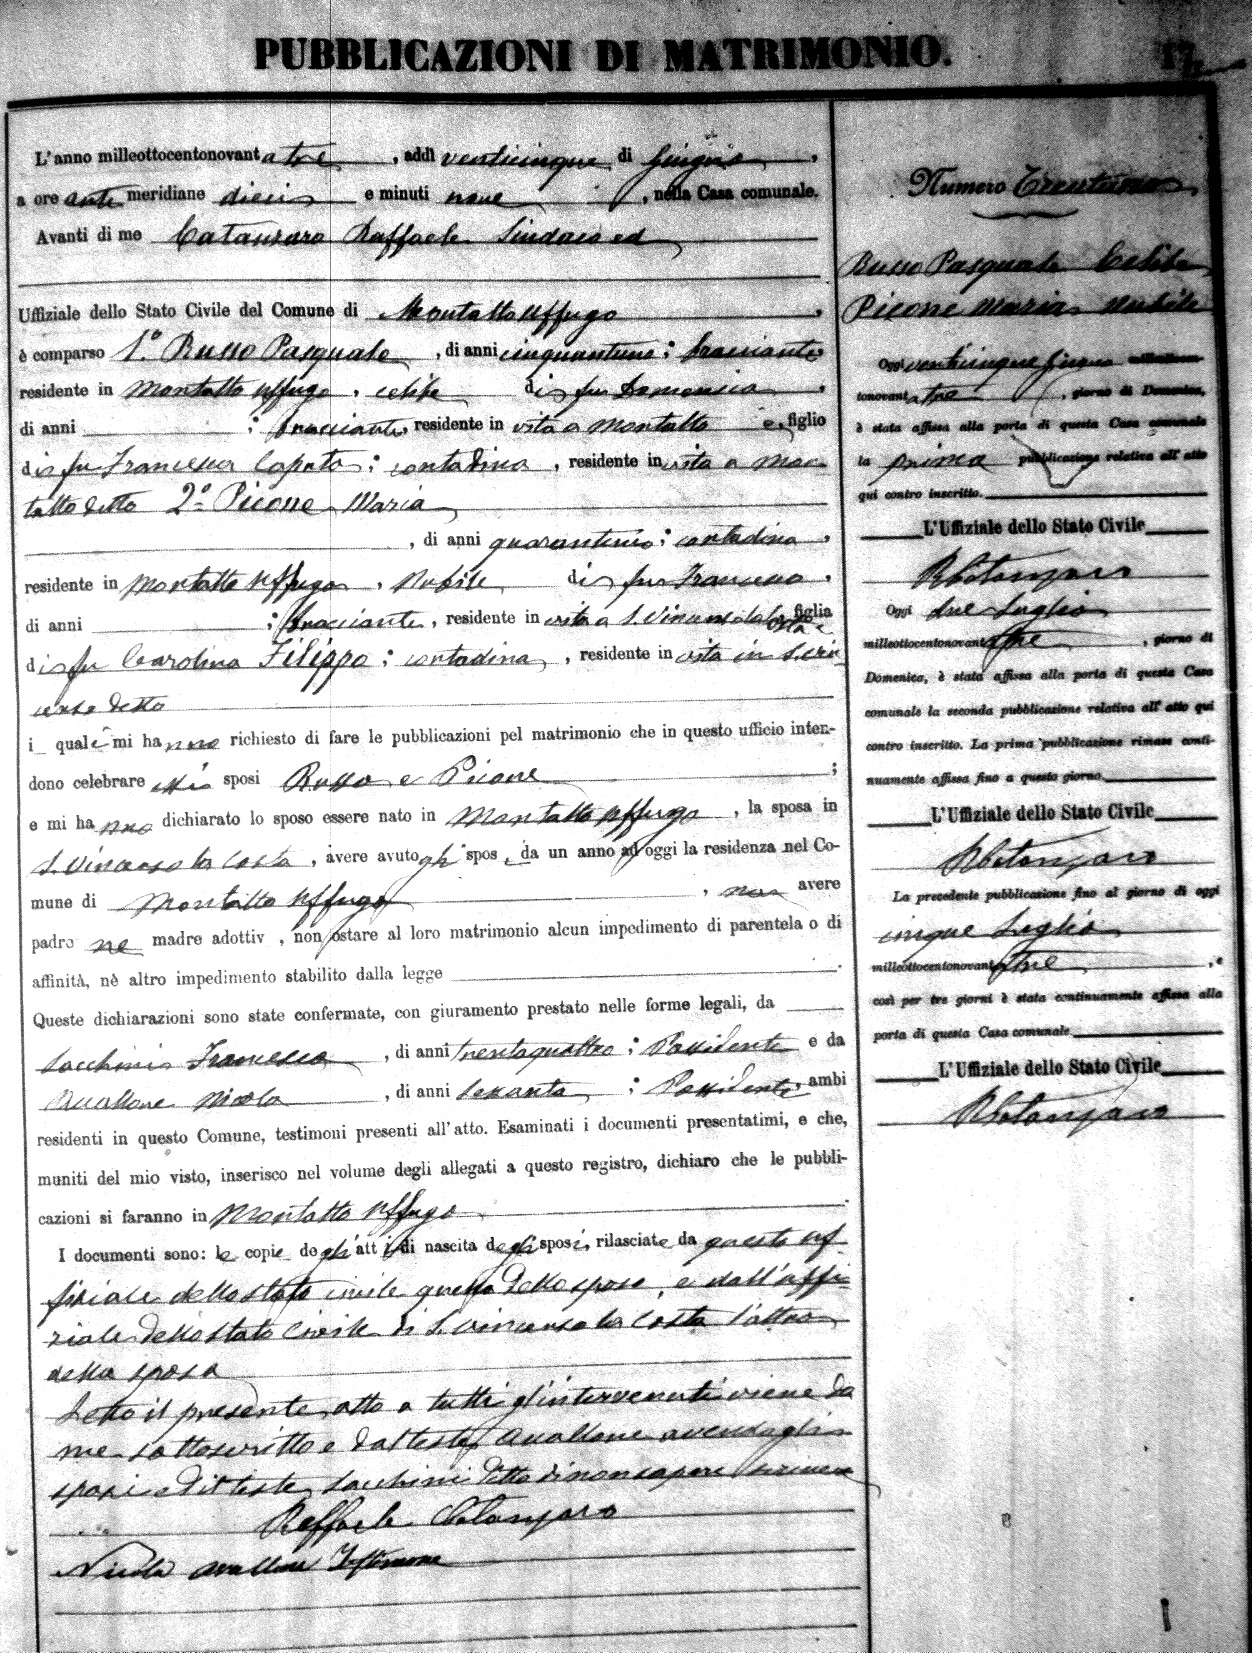 PUBBLICAZIONI DI MATRIMONIO.
L'anno milleottocentonovantatre, addì venticinque di Giugno,
a ore ante meridiane dieci e minuti nove, nella Casa comunale.
Avanti di me Catanzaro Raffaele Sindaco ed
Uffiziale dello Stato Civile del Comune di Montalto Uffugo,
è comparso 1.º Russo Pasquale, di anni cinquantuno; bracciante
residente in Montalto Uffugo, celibe di fu Domenico,
di anni ; bracciante, residente in vita a Montalto e, figlio
di fu Francesca Caputo; contadina, residente in vita a Mon
talto detto 2º Picone Maria
, di anni ; contadina,
residente in Montalto Uffugo, Nubile di fu Francesco,
di anni ; bracciante, residente in vita a S. Vincenzo la Costa e figlia
di fu Carolina Filippo; contadina, residente in vita in S. Vin
cenzo detto
i quali mi hanno richiesto di fare le pubblicazioni pel matrimonio che in questo ufficio inten-
dono celebrare essi sposi Russo e Picone ;
e mi hanno dichiarato lo sposo essere nato in Montalto Uffugo, la sposa in
S. Vincenzo la Costa, avere avuto gli sposi, da un anno ad oggi la residenza nel Co-
mune di Montalto Uffugo, non avere
padre ne madre adottiv , non ostare al loro matrimonio alcun impedimento di parentela o di
affinità, nè altro impedimento stabilito dalla legge .
Queste dichiarazioni sono state confermate, con giuramento prestato nelle forme legali, da
Sacchini Francesco, di anni trentaquattro; Possidente e da
Avallone Nicola, di anni sessanta; Possidente, ambi
residenti in questo Comune, testimoni presenti all'atto. Esaminati i documenti presentatimi, e che,
muniti del mio visto, inserisco nel volume degli allegati a questo registro, dichiaro che le pubbli-
cazioni si faranno in Montalto Uffugo.
I documenti sono: le copie degli atti di nascita degli sposi, rilasciate da questo uf
fiziale dello stato civile quella dello sposo, e dall'uffi
ziale dello stato civile di S. Vincenzo la Costa l'altra
della sposa
Letto il presente atto a tutti gl'intervenuti viene da
me sottoscritto e dal teste Avallone avendo gli
sposi ed il teste Sacchini detto di non sapere scrivere
Raffaele Catanzaro
Nicola Avallone Testimone
17
Numero Trentuno
Russo Pasquale Celibe
Picone Maria Nubile
Oggi venticinque Giugno milleottocen-
tonovantatre, giorno di Domenica,
è stata affissa alla porta di questa Casa comunale
la prima pubblicazione relativa all'atto
qui contro inscritto.
L'Uffiziale dello Stato Civile
R Catanzaro
Oggi due Luglio
milleottocentonovantatre, giorno di
Domenica, è stata affissa alla porta di questa Casa
comunale la seconda pubblicazione relativa all'atto qui
contro inscritto. La prima pubblicazione rimase conti-
nuamente affissa fino a questo giorno.
L'Uffiziale dello Stato Civile
R Catanzaro
La precedente pubblicazione fino al giorno di oggi
cinque Luglio
milleottocentonovantatre, e
così per tre giorni è stata continuamente affissa alla
porta di questa Casa comunale
L'Uffiziale dello Stato Civile
R Catanzaro